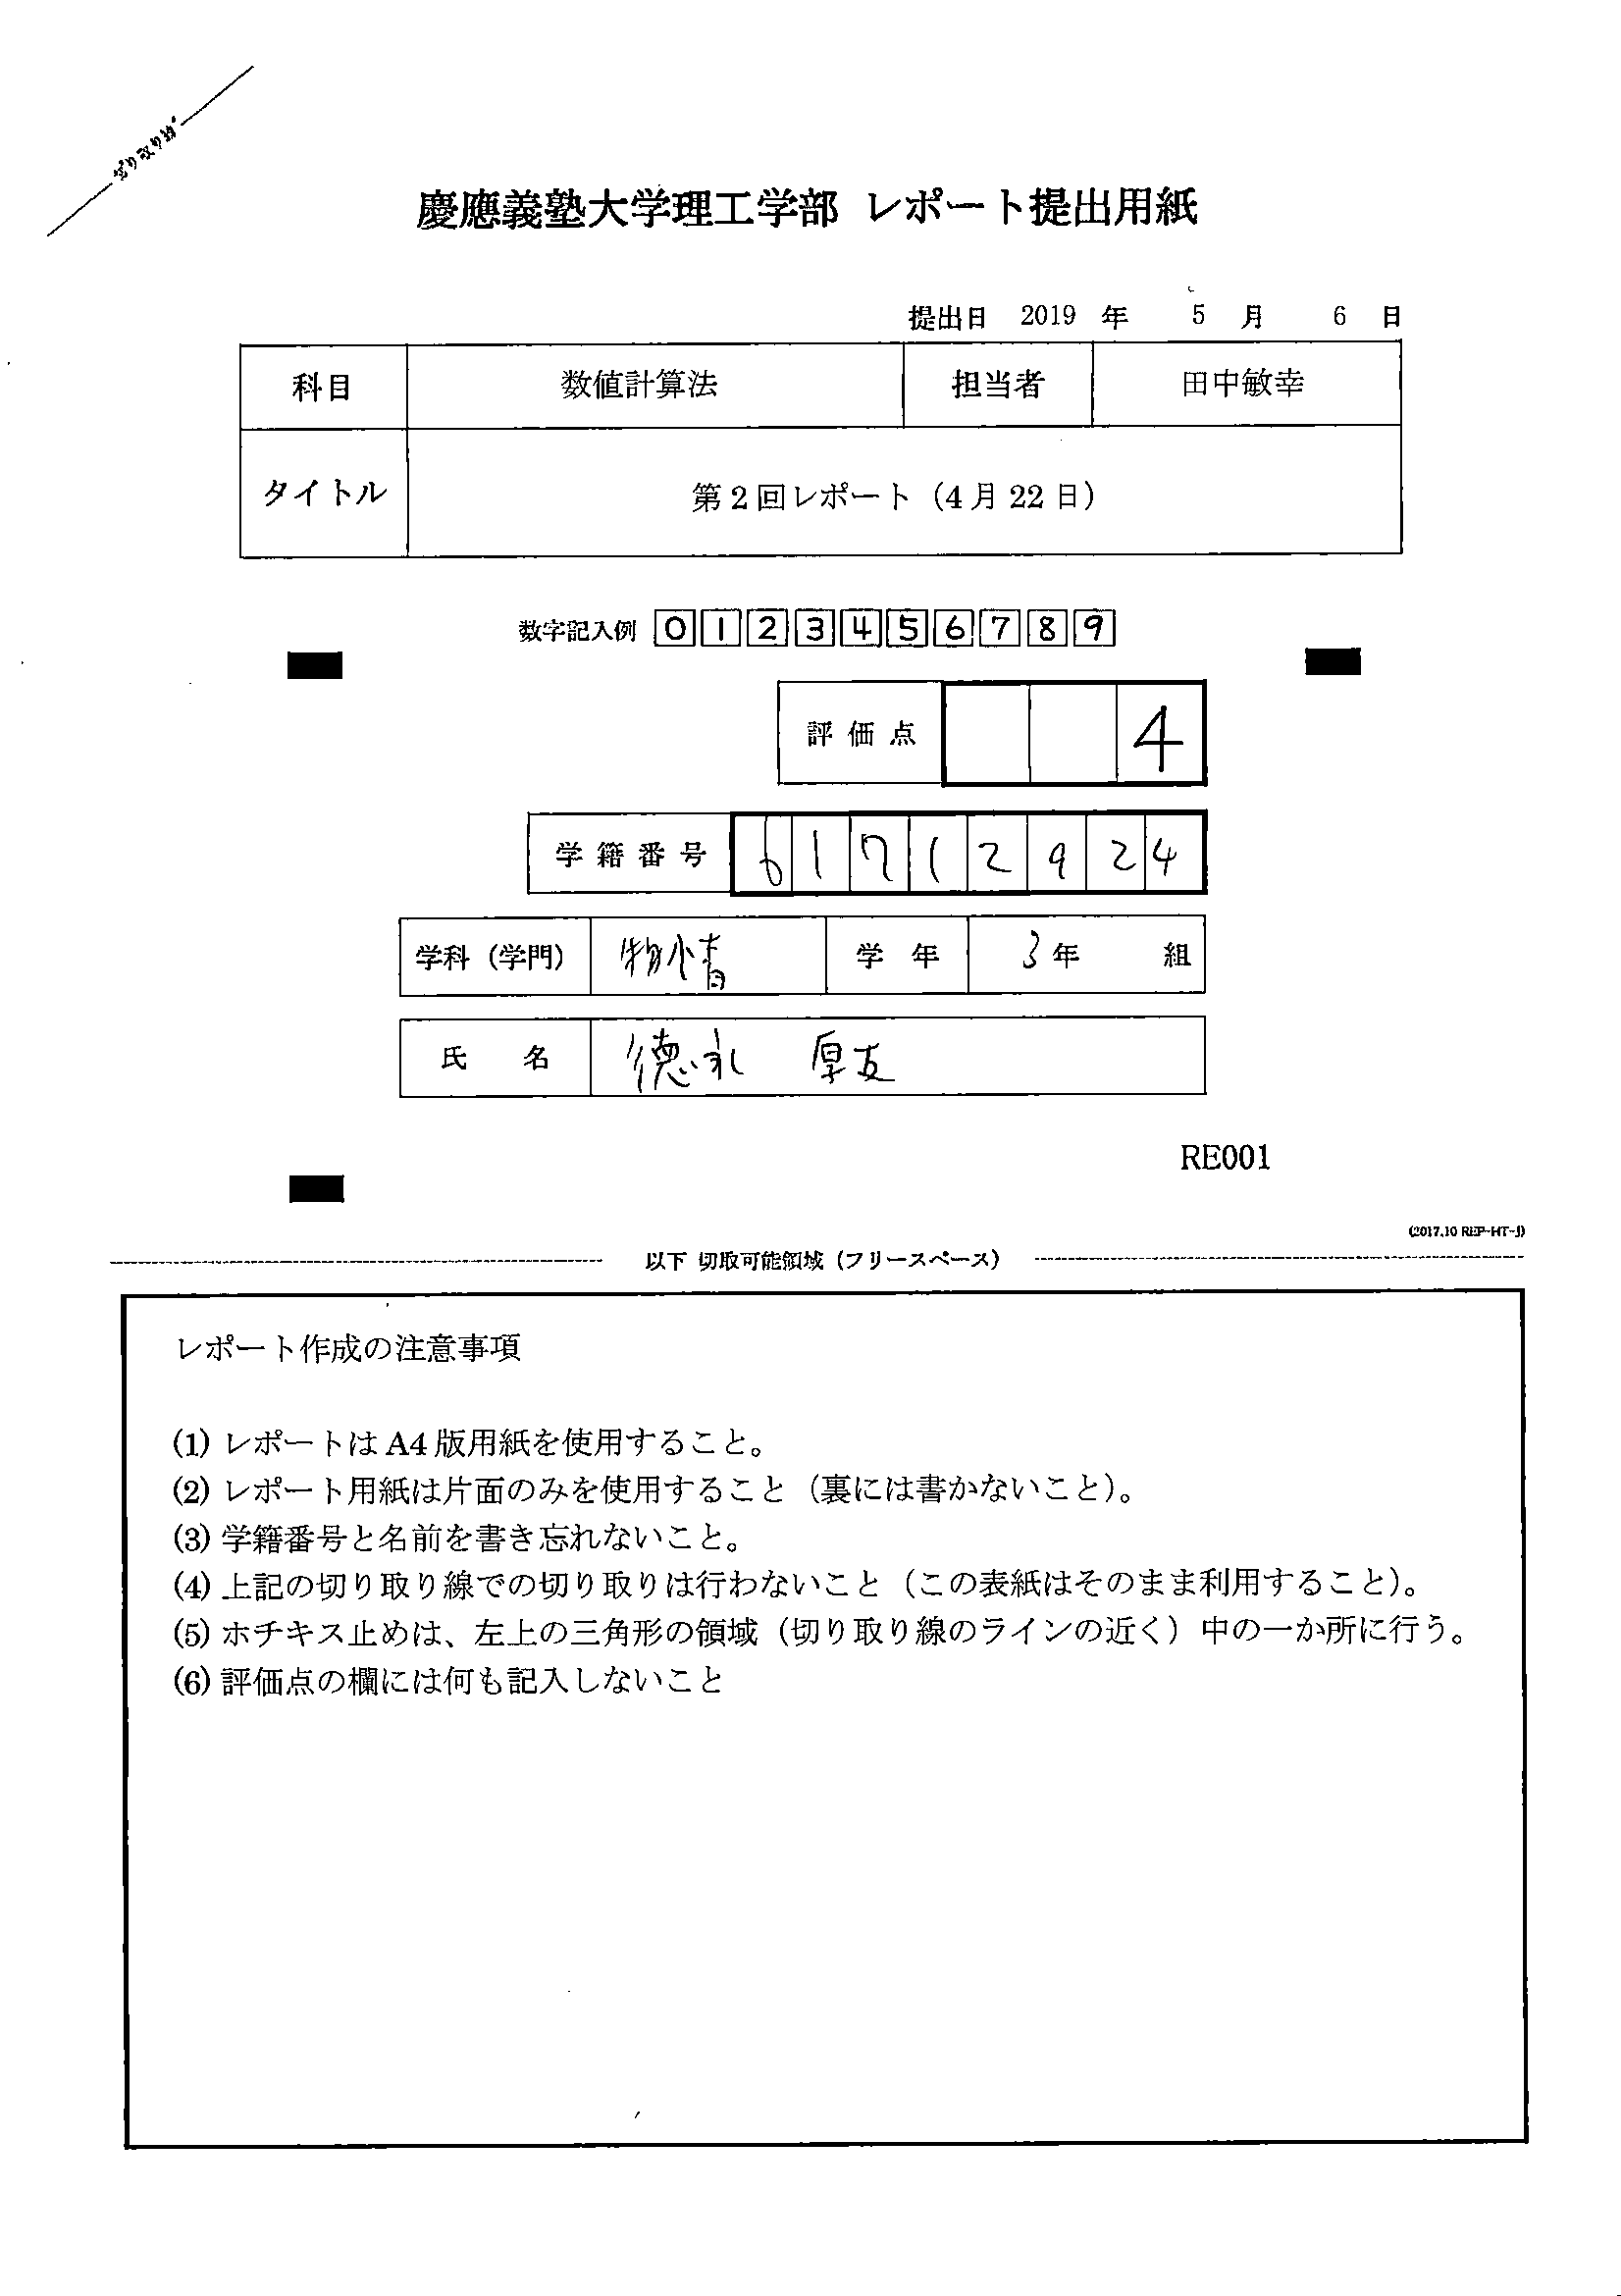 切り取り線
慶應義塾大学理工学部 レポート提出用紙
提出日 2019 年 5 月 6 日
科目 数値計算法 担当者 田中敏幸
タイトル 第2回レポート（4月22日）
数字記入例 0 1 2 3 4 5 6 7 8 9
評価点 4
学籍番号 61712924
学科（学門） 物情 学年 3年 組
氏名 徳永 厚友
RE001
(2017.10 REP-HT-J)
以下 切取可能領域（フリースペース）
レポート作成の注意事項
(1) レポートはA4版用紙を使用すること。
(2) レポート用紙は片面のみを使用すること（裏には書かないこと）。
(3) 学籍番号と名前を書き忘れないこと。
(4) 上記の切り取り線での切り取りは行わないこと（この表紙はそのまま利用すること）。
(5) ホチキス止めは、左上の三角形の領域（切り取り線のラインの近く）中の一か所に行う。
(6) 評価点の欄には何も記入しないこと